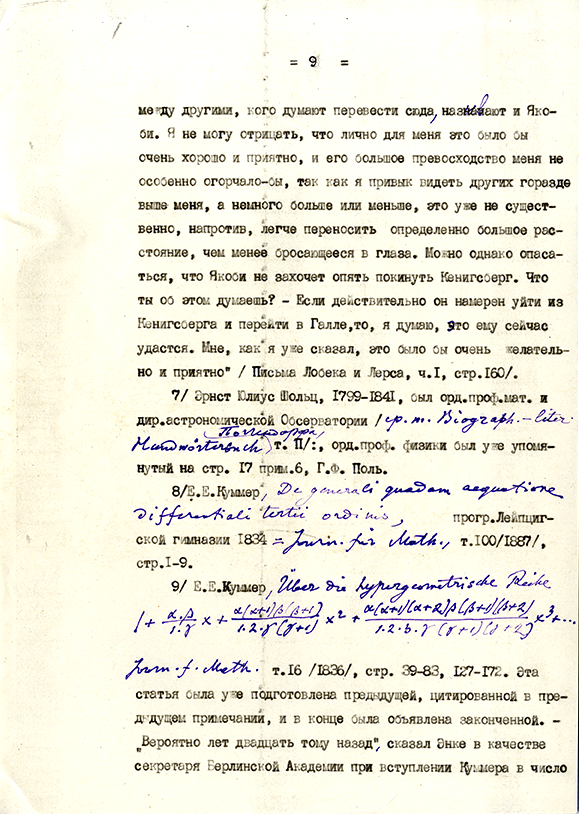 = 9 =
между другими, кого думают перевести сюда, называют и Яко-
би. Я не могу отрицать, что лично для меня это было бы
очень хорошо и приятно, и его большое превосходство меня не
особенно огорчало-бы, так как я привык видеть других гораздо
выше меня, а немного больше или меньше, это уже не сущест-
венно, напротив, легче переносить определенно большое рас-
стояние, чем менее бросающееся в глаза. Можно однако опаса-
ться, что Якоби не захочет опять покинуть Кенигсберг. Что
ты об этом думаешь? - Если действительно он намерен уйти из
Кенигсберга и перейти в Галле,то, я думаю, это ему сейчас
удастся. Мне, как я уже сказал, это было бы очень желатель-
но и приятно" / Письма Лобека и Лерса, ч.I, стр.160/.
7/ Эрнст Юлиус Шольц, 1799-1841, был орд.проф.мат. и
дир.астрономической Обсерватории /ср. т. Biograph.-liter.
Handwörterbuch (Поггендорфа) т. П/:, орд.проф. физики был уже упомя-
нутый на стр. 17 прим.6, Г.Ф. Поль.
8/Е.Е.Куммер, De generali quadam aequatione
differentiali tertii ordinis, прогр.Лейпциг-
ской гимназии 1834 = Journ. für Math., т.100/1887/,
стр.1-9.
9/ Е.Е.Куммер, Über die hypergeometrische Reihe
1 + α.β/1.γ x + α(α+1)β(β+1)/1.2.γ(γ+1) x² + α(α+1)(α+2)β(β+1)(β+2)/1.2.3.γ(γ+1)(γ+2) x³ + ...
Journ. f. Math. т.16 /1836/, стр. 39-83, 127-172. Эта
статья была уже подготовлена предыдущей, цитированной в пре-
дыдущем примечании, и в конце была объявлена законченной. -
„Вероятно лет двадцать тому назад", сказал Энке в качестве
секретаря Берлинской Академии при вступлении Куммера в число